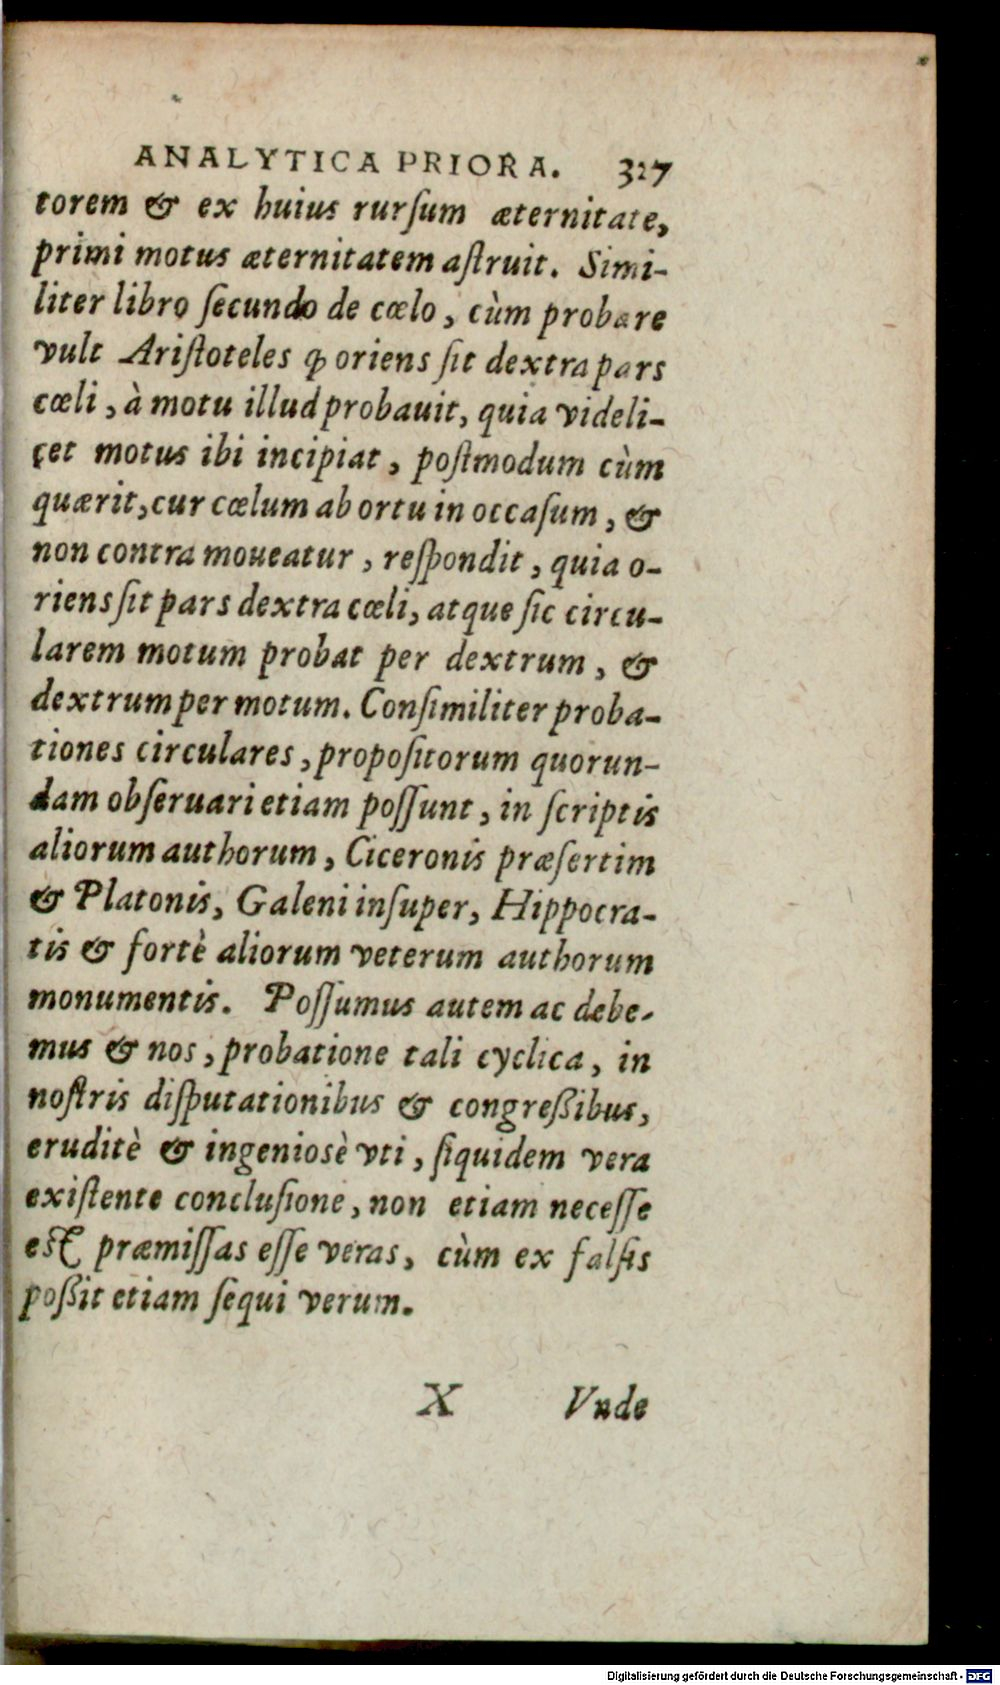 ANALYTICA PRIORA. 327
torem & ex huius rurſum æternitate,
primi motus æternitatem aſtruit. Simi-
liter libro ſecundo de cœlo, cùm probare
vult Ariſtoteles ꝙ oriens ſit dextra pars
cœli, à motu illud probauit, quia videli-
cet motus ibi incipiat, poſtmodum cùm
quærit, cur cœlum ab ortu in occaſum, &
non contra moueatur, reſpondit, quia o-
riens ſit pars dextra cœli, atque ſic circu-
larem motum probat per dextrum, &
dextrum per motum. Conſimiliter proba-
tiones circulares, propoſitorum quorun-
dam obſeruari etiam poſſunt, in ſcriptis
aliorum authorum, Ciceronis præſertim
& Platonis, Galeni inſuper, Hippocra-
tis & fortè aliorum veterum authorum
monumentis. Poſſumus autem ac debe-
mus & nos, probatione tali cyclica, in
noſtris diſputationibus & congreßibus,
eruditè & ingeniosè vti, ſiquidem vera
exiſtente concluſione, non etiam neceſſe
eſt præmiſſas eſſe veras, cùm ex falſis
poßit etiam ſequi verum.
X Vnde
Digitalisierung gefördert durch die Deutsche Forschungsgemeinschaft - DFG